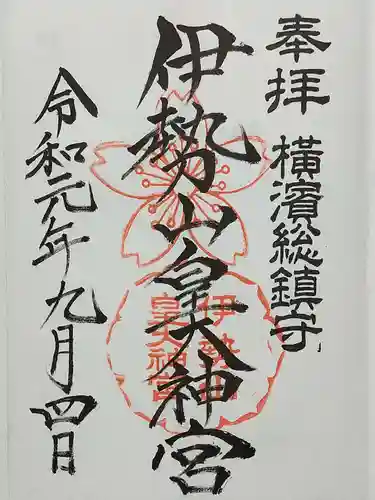 奉拝
横濱総鎮守
伊勢山皇大神宮
伊勢山
皇大神宮
令和元年九月四日